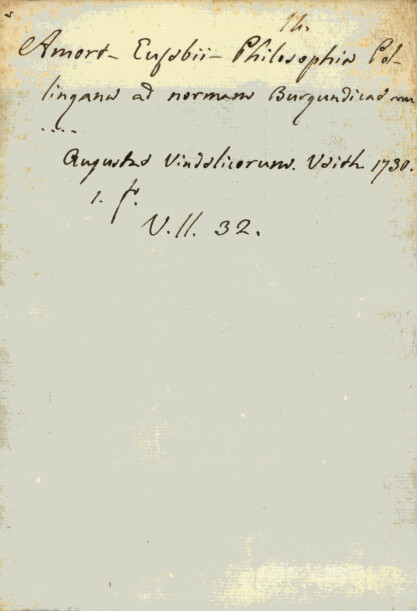 Th.
Amort Eusebii Philosophia Pol-
lingana ad normam Burgundicae
....
Augustae Vindelicorum. Veith 1730.
1. f.
V. II. 32.